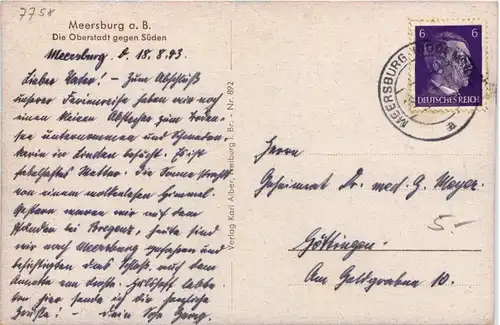 7758
Meersburg a. B.
Die Oberstadt gegen Süden
Meersburg, d. 18.8.43.
Lieber Vater! – Zum Abschluß
unserer Ferienreise haben wir noch
einen kleinen Abstecher zum Boden-
see unternommen und
in Lindau besucht. Es ist
fabelhaftes Wetter. Die Sonne strahlt
von einem wolkenlosen Himmel.
Gestern waren wir auf dem
Pfänder bei Bregenz, heute sind
wir nach Meersburg gefahren und
besichtigten das Schloß, auch dem
Annette von Droste-Hülshoff lebte.
Von hier sende ich die herzliche
Grüße! – Dein Sohn Georg.
Verlag Karl Alber, Freiburg i. Br. - Nr. 892
6 6
DEUTSCHES REICH
MEERSBURG
a
Herrn
Geheimrat Dr. med. G. Meyer
5-
Göttingen.
Am Goldgraben 10.